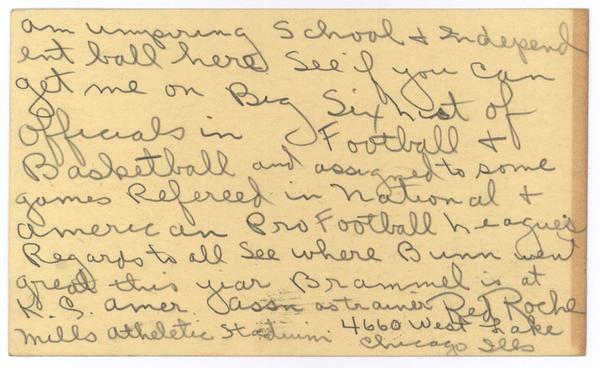 am umpiring School & Independ
ent ball here See if you can
get me on Big Six List of
Officials in Football &
Basketball and assigned to some
games Refereed in National &
American Pro Football Leagues
Regards to all See where Bunn went
great this year Brammel is at
K.C. Amer Assn as trainer Red Roche
Mills Atheletic Stadium 4660 West Lake
Chicago Ills